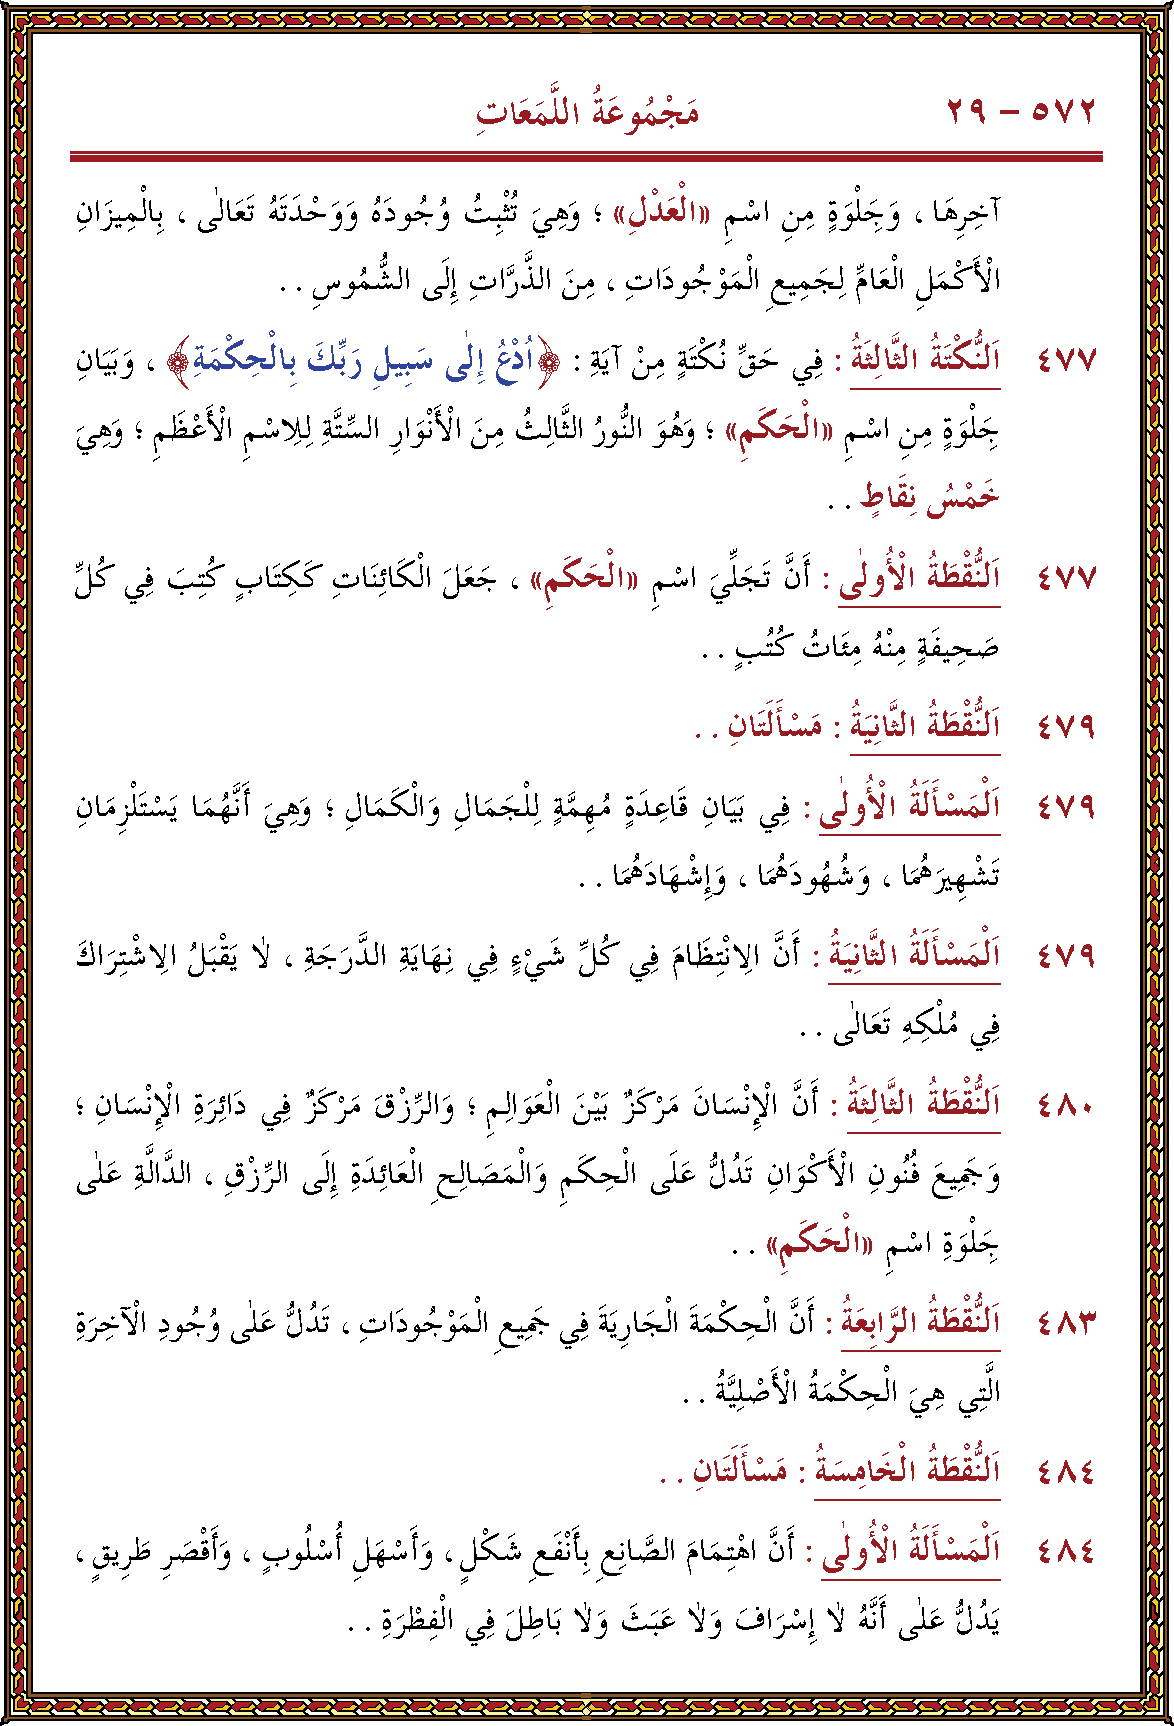 ٥٧٢ – ٢٩ مَجْمُوعَةُ اللَّمَعَاتِ
آخِرِهَا ، وَجَلْوَةٌ مِنِ اسْمِ «الْعَدْلِ» ؛ وَهِيَ تُثْبِتُ وُجُودَهُ وَوَحْدَتَهُ تَعَالٰى ، بِالْمِيزَانِ
الْأَكْمَلِ الْعَامِّ لِجَمِيعِ الْمَوْجُودَاتِ ، مِنَ الذَّرَّاتِ إِلَى الشُّمُوسِ . .
٤٧٧ اَلنُّكْتَةُ الثَّالِثَةُ : فِي حَقِّ نُكْتَةٍ مِنْ آيَةِ : ﴿اُدْعُ إِلٰى سَبِيلِ رَبِّكَ بِالْحِكْمَةِ﴾ ، وَبَيَانِ
جَلْوَةٍ مِنِ اسْمِ «الْحَكَمِ» ؛ وَهُوَ النُّورُ الثَّالِثُ مِنَ الْأَنْوَارِ السِّتَّةِ لِلِاسْمِ الْأَعْظَمِ ؛ وَهِيَ
خَمْسُ نِقَاطٍ . .
٤٧٧ اَلنُّقْطَةُ الْأُولٰى : أَنَّ تَجَلِّيَ اسْمِ «الْحَكَمِ» ، جَعَلَ الْكَائِنَاتِ كَكِتَابٍ كُتِبَ فِي كُلِّ
صَحِيفَةٍ مِنْهُ مِئَاتُ كُتُبٍ . .
٤٧٩ اَلنُّقْطَةُ الثَّانِيَةُ : مَسْأَلَتَانِ . .
٤٧٩ اَلْمَسْأَلَةُ الْأُولٰى : فِي بَيَانِ قَاعِدَةٍ مُهِمَّةٍ لِلْجَمَالِ وَالْكَمَالِ ؛ وَهِيَ أَنَّهُمَا يَسْتَلْزِمَانِ
تَشْهِيرَهُمَا ، وَشُهُودَهُمَا ، وَإِشْهَادَهُمَا . .
٤٧٩ اَلْمَسْأَلَةُ الثَّانِيَةُ : أَنَّ الِانْتِظَامَ فِي كُلِّ شَيْءٍ فِي نِهَايَةِ الدَّرَجَةِ ، لَا يَقْبَلُ الِاشْتِرَاكَ
فِي مُلْكِهِ تَعَالٰى . .
٤٨٠ اَلنُّقْطَةُ الثَّالِثَةُ : أَنَّ الْإِنْسَانَ مَرْكَزٌ بَيْنَ الْعَوَالِمِ ؛ وَالرِّزْقَ مَرْكَزٌ فِي دَائِرَةِ الْإِنْسَانِ ؛
وَجَمِيعَ فُنُونِ الْأَكْوَانِ تَدُلُّ عَلَى الْحِكَمِ وَالْمَصَالِحِ الْعَائِدَةِ إِلَى الرِّزْقِ ، الدَّالَّةِ عَلٰى
جَلْوَةِ اسْمِ «الْحَكَمِ» . .
٤٨٣ اَلنُّقْطَةُ الرَّابِعَةُ : أَنَّ الْحِكْمَةَ الْجَارِيَةَ فِي جَمِيعِ الْمَوْجُودَاتِ ، تَدُلُّ عَلٰى وُجُودِ الْآخِرَةِ
الَّتِي هِيَ الْحِكْمَةُ الْأَصْلِيَّةُ . .
٤٨٤ اَلنُّقْطَةُ الْخَامِسَةُ : مَسْأَلَتَانِ . .
٤٨٤ اَلْمَسْأَلَةُ الْأُولٰى : أَنَّ اهْتِمَامَ الصَّانِعِ بِأَنْفَعِ شَكْلٍ ، وَأَسْهَلِ أُسْلُوبٍ ، وَأَقْصَرِ طَرِيقٍ ،
يَدُلُّ عَلٰى أَنَّهُ لَا إِسْرَافَ وَلَا عَبَثَ وَلَا بَاطِلَ فِي الْفِطْرَةِ . .